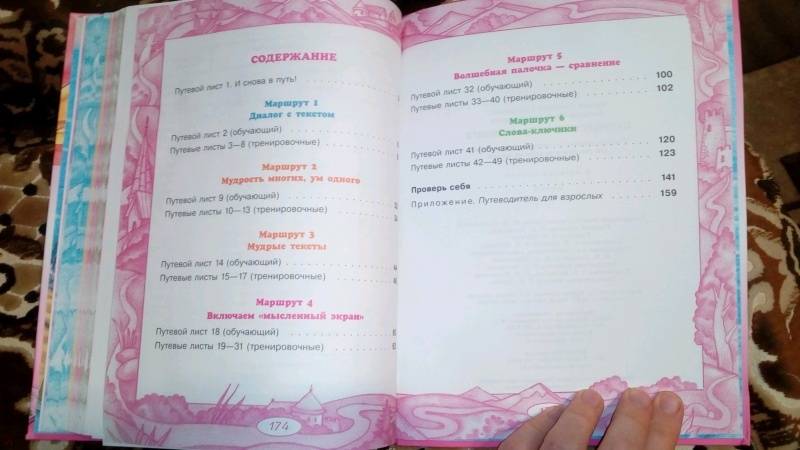 СОДЕРЖАНИЕ
Путевой лист 1. И снова в путь!
Маршрут 1
Диалог с текстом
Путевой лист 2 (обучающий)
Путевые листы 3—8 (тренировочные)
Маршрут 2
Мудрость многих, ум одного
Путевой лист 9 (обучающий)
Путевые листы 10—13 (тренировочные)
Маршрут 3
Мудрые тексты
Путевой лист 14 (обучающий)
Путевые листы 15—17 (тренировочные)
Маршрут 4
Включаем «мысленный экран»
Путевой лист 18 (обучающий)
Путевые листы 19—31 (тренировочные)
174
Маршрут 5
Волшебная палочка — сравнение
Путевой лист 32 (обучающий) 100
Путевые листы 33—40 (тренировочные) 102
Маршрут 6
Слова-ключики
Путевой лист 41 (обучающий) 120
Путевые листы 42—49 (тренировочные) 123
Проверь себя 141
Приложение. Путеводитель для взрослых 159